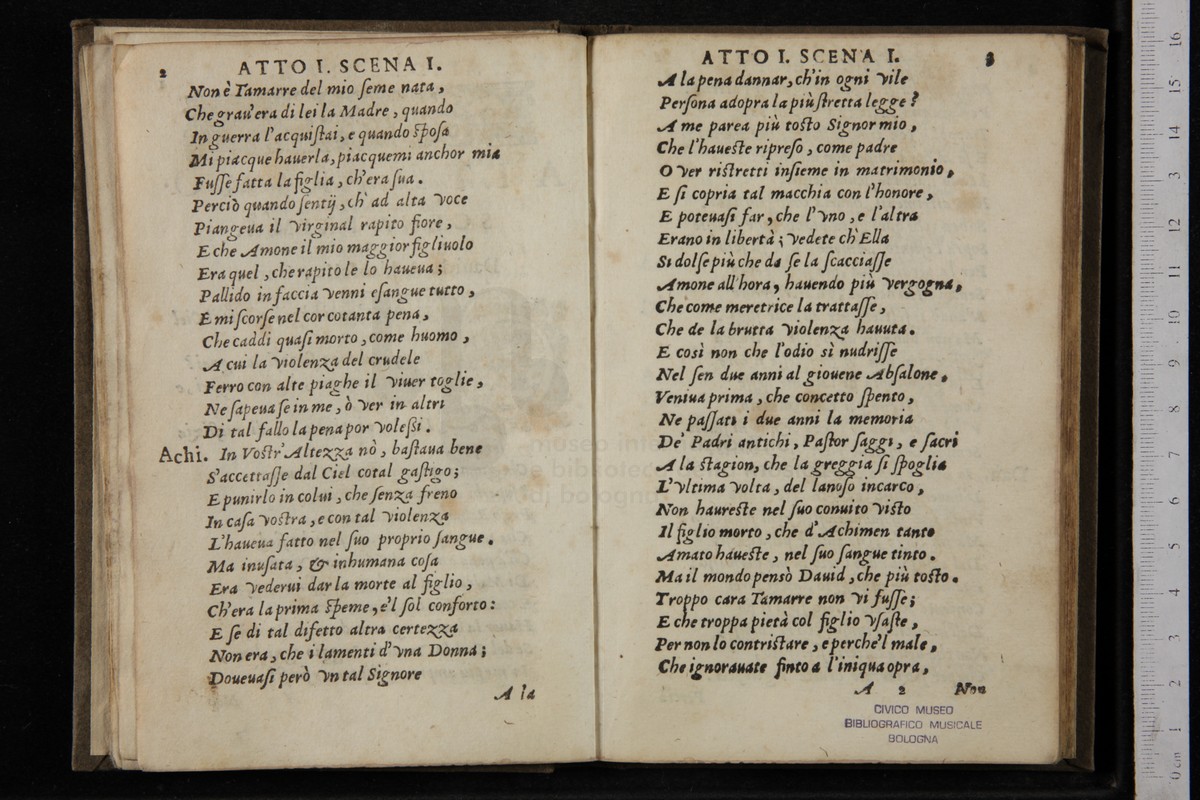 2 ATTO I. SCENA I.
Non è Tamarre del mio ſeme nata,
Che grau'era di lei la Madre, quando
In guerra l'acquiſtai, e quando Spoſa
Mi piacque hauerla, piacquemi anchor mia
Fuſſe fatta la figlia, ch'era ſua.
Perciò quando ſentij, ch' ad alta voce
Piangeua il virginal rapito fiore,
E che Amone il mio maggior figliuolo
Era quel, che rapito le lo haueua;
Pallido in faccia venni eſangue tutto,
E mi ſcorſe nel cor cotanta pena,
Che caddi quaſi morto, come huomo,
A cui la violenza del crudele
Ferro con alte piaghe il viuer toglie,
Ne ſapeua ſe in me, ò ver in altri
Di tal fallo la pena por voleſsi.
Achi. In Voſtr'Altezza nò, baſtaua bene
S'accettaſſe dal Ciel cotal gaſtigo;
E punirlo in colui, che ſenza freno
In caſa voſtra, e con tal violenza
L'haueua fatto nel ſuo proprio ſangue.
Ma inuſata, & inhumana coſa
Era vederui dar la morte al figlio,
Ch'era la prima ſpeme, e'l ſol conforto:
E ſe di tal difetto altra certezza
Non era, che i lamenti d'vna Donna;
Doueuaſi però vn tal Signore
A la
ATTO I. SCENA I. 3
A la pena dannar, ch'in ogni vile
Perſona adopra la più ſtretta legge?
A me parea più toſto Signor mio,
Che l'haueſte ripreſo, come padre
O ver riſtretti inſieme in matrimonio,
E ſi copria tal macchia con l'honore,
E poteuaſi far, che l'vno, e l'altra
Erano in libertà; vedete ch'Ella
Si dolſe più che da ſe la ſcacciaſſe
Amone all'hora, hauendo più vergogna,
Che come meretrice la trattaſſe,
Che de la brutta violenza hauuta.
E così non che l'odio sì nudriſſe
Nel ſen due anni al giouene Abſalone,
Veniua prima, che concetto ſpento,
Ne paſſati i due anni la memoria
De' Padri antichi, Paſtor ſaggi, e ſacri
A la ſtagion, che la greggia ſi ſpoglia
L'vltima volta, del lanoſo incarco,
Non haureſte nel ſuo conuito viſto
Il figlio morto, che d'Achimen tanto
Amato haueſte, nel ſuo ſangue tinto.
Ma il mondo pensò Dauid, che più toſto.
Troppo cara Tamarre non vi fuſſe;
E che troppa pietà col figlio vſaſte,
Per non lo contriſtare, e perche'l male,
Che ignorauate finto a l'iniqua opra,
A 2 Non
CIVICO MUSEO
BIBLIOGRAFICO MUSICALE
BOLOGNA